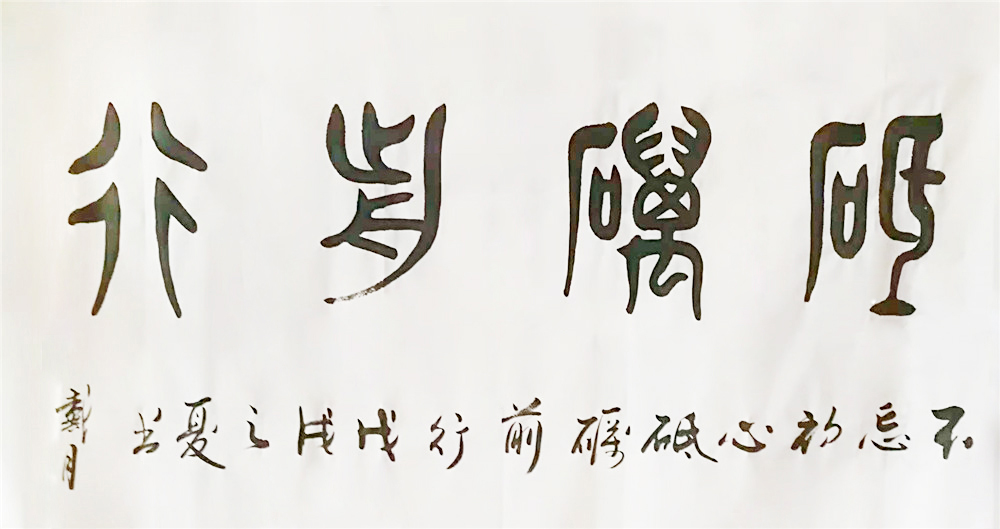 砥礪前行
不忘初心砥礪前行戊戌之夏书
戴月